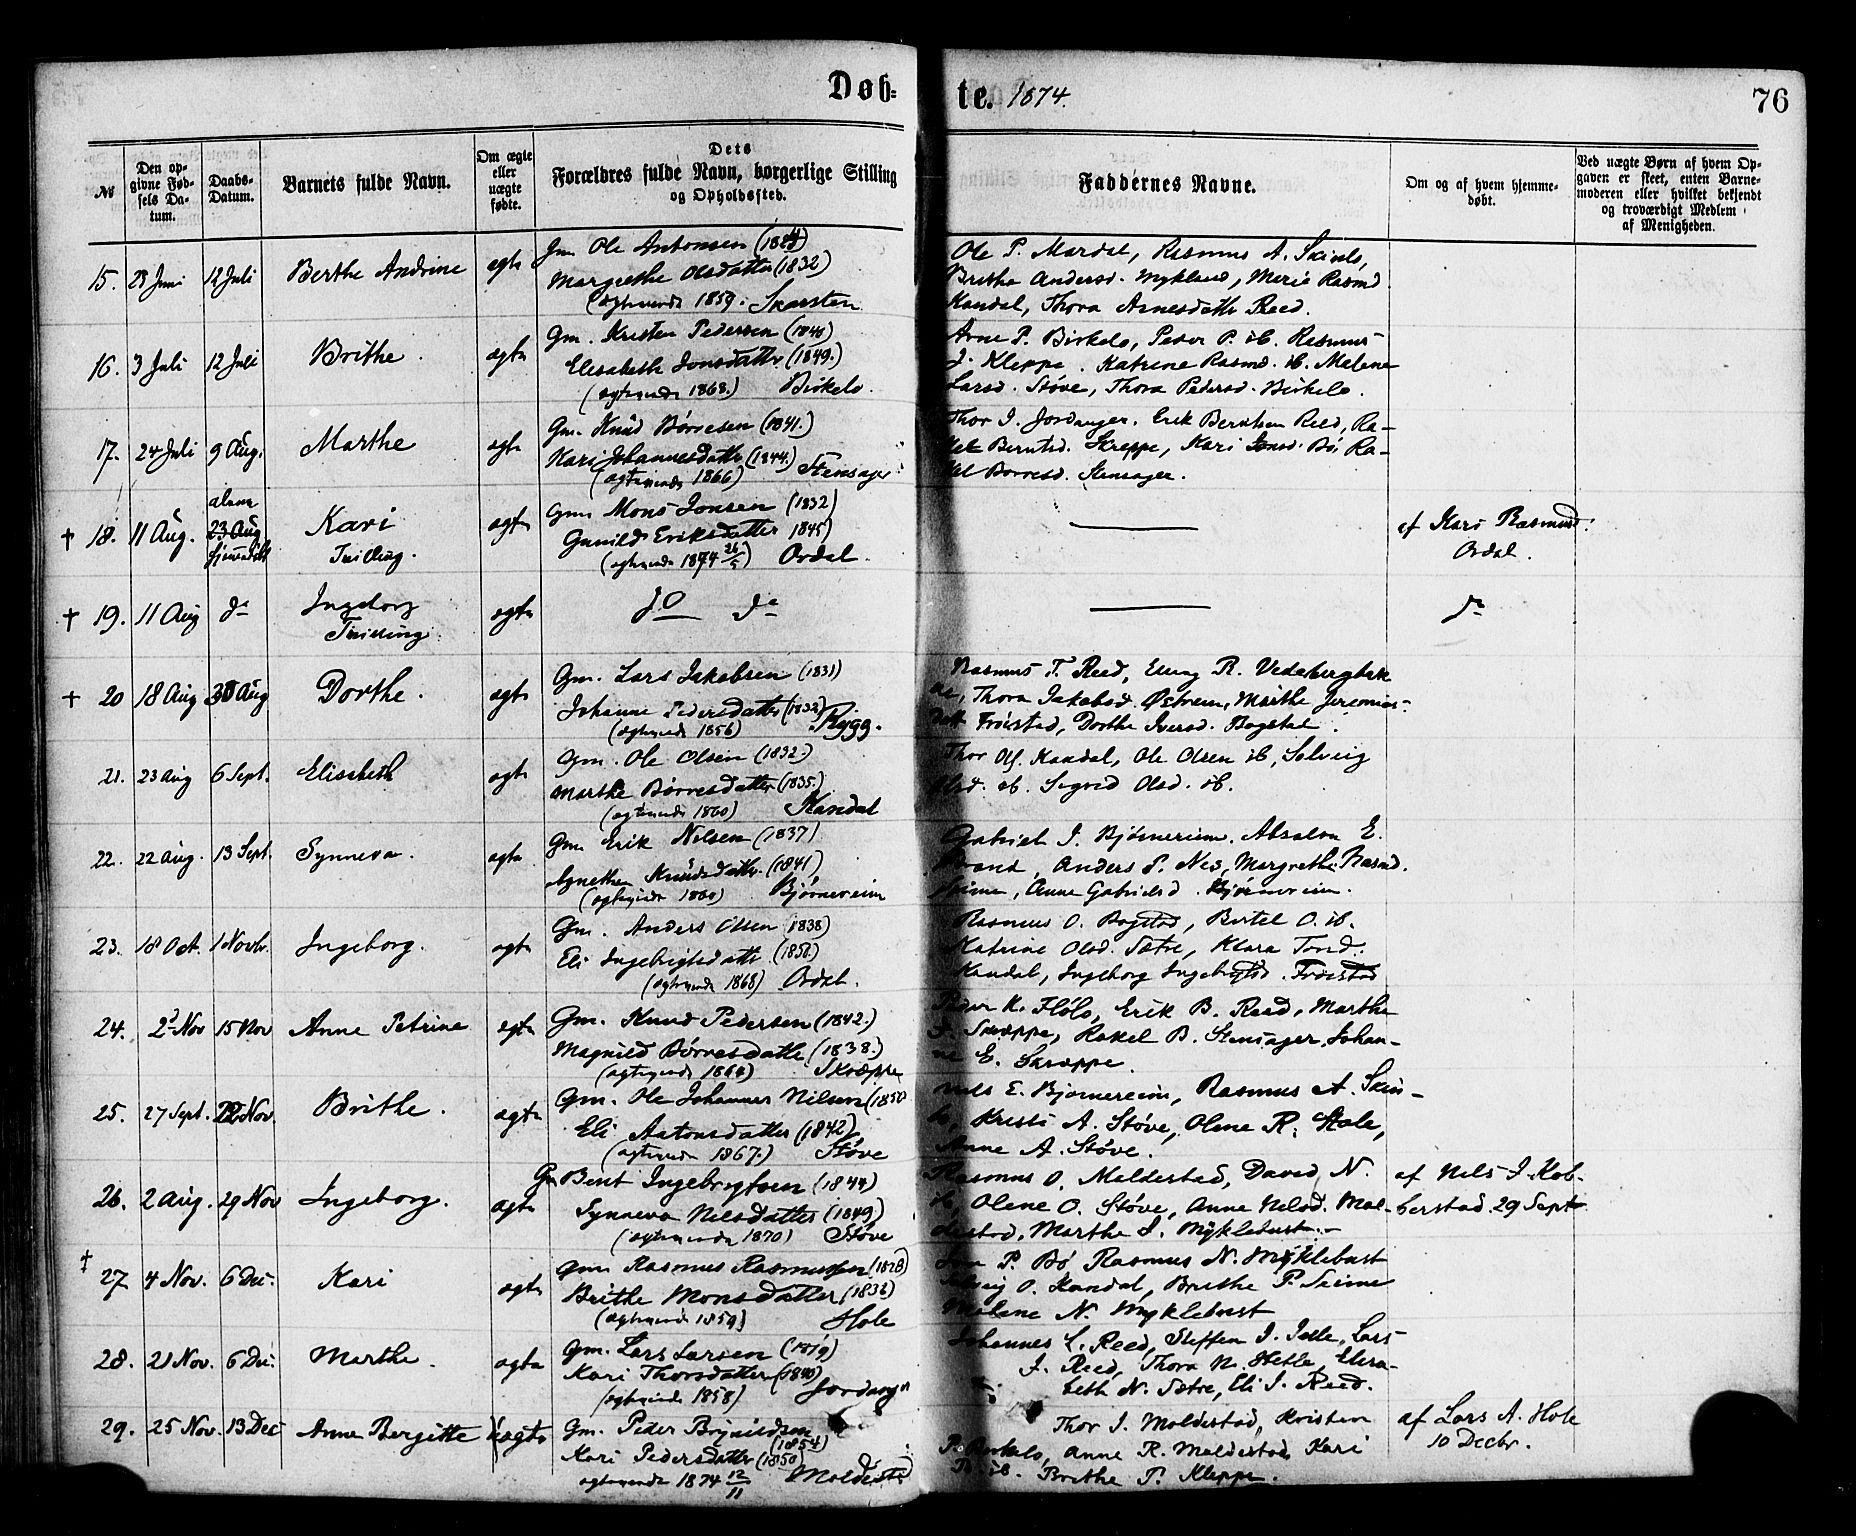 Døb-
te. 1874.
76
No
Den opgivne Fødsels Datum.
Daabs-Datum.
Barnets fulde Navn.
Om ægte eller uægte fødte.
Dets Forældres fulde Navn, borgerlige Stilling og Opholdssted.
Faddernes Navne.
Om og af hvem hjemmedøbt.
Ved uægte Børn af hvem Opgaven er skeet, enten Barnemoderen eller hvilket bekjendt og troværdigt Medlem af Menigheden.
15. 28 Juni 12 Juli Berthe Andrine ægte Gm. Ole Antonsen
Margrethe Olsdatter (1832)
(ægteviede 1859. Skarsten
Ole P. Mardal, Rasmus A.
Brithe Andersd. Mykland, Marie Rasmd
Kandal, Thora Arnesdatt Reed.
16. 3 Juli 12 Juli Brithe. ægte Gm. Kristen Pedersen (1840)
Elisabeth Jonsdatter (1849.)
(ægteviede 1868.) Birkelo.
Arne P. Birkelo, Peder P. ib. Rasmus
J. Kleppe. Katrine Rasmd. ib. Malene
Larsd. Støve, Thora Pedersd. Birkelo.
17. 24 Juli 9 Aug. Marthe ægte Gm. Knud Børresen (1841.)
Kari Johannesdatter (1844.)
(ægteviede 1866) Stensager
Thor I. Jordanger. Erik Berntsen Reed, Ra-
kel Berntsd. Skreppe, Kari Jonsd. Bø, Ra-
kel Børresd. Stensager.
† 18. 11 Aug. 23 Aug hjemmedøbt Kari
Tvilling. ægte Gm. Mons Jonsen (1832
Gunild Eriksdatter 1845)
(ægteviede 1874 26/5) Ordal.
af Kari Rasmusd.
Ordal.
† 19. 11 Aug do Ingeborg
Tvilling. ægte do do
do
† 20 18 Aug 30 Aug Dorthe. ægte Gm. Lars Jakobsen (1831)
Johanne Pedersdatter (1832)
(ægteviede 1856) Rygg.
Rasmus T. Reed, Elling R.
Thora Jakobsd. Østrem, Marthe Jeremias-
datt Frøistad, Dorthe Iversd. Bogstad.
21. 23 Aug 6 Sept. Elisabeth ægte Gm. Ole Olsen (1832.)
Marthe Børresdatter (1835.)
(ægteviede 1860) Kandal
Thor Ols. Kandal, Ole Olsen ib, Solveig
Olsd. ib. Sigrid Olsd. ib.
22. 22 Aug. 13 Sept. Synneva. ægte Gm. Erik Nilsen (1837)
Agnethe Knudsdatter. (1841)
(ægteviede 1860) Bjørnereim
Gabriel I. Bjørnereim. Absalon E.
Strand, Anders P. Nes, Margrethe Rasmd.
Anne Gabrielsd. Bjørnereim.
23. 18 Oct. 1 Novb. Ingeborg. ægte Gm. Anders Olsen (1838)
Eli Ingebrigtsdatt.
(ægteviede 1868) Ordal.
Rasmus O. Bogstad, Bertel O. ib.
Katrine Olsd. Sætre, Klara
Kandal, Ingeborg Ingebrigtsd. Frøistad
24. 2 Nov 15 Nov Anne Petrine ægte Gm. Knud Pedersen (1842.)
Magnild Børresdatte (1838.)
(ægteviede 1864) Skreppe
Peder K. Fløtø, Erik B. Reed, Marthe
J. Skreppe, Rakel B. Stensager, Johan-
ne E. Skreppe.
25. 27 Sept. 22 Nov. Brithe. ægte Gm. Ole Johannes Nilsen (1850
Eli Antonsdatter (1842)
(ægteviede 1867.) Støve
Nils E. Bjørnereim, Rasmus A.
Kristi A. Støve, Olene R. Hole,
Anne A. Støve.
26. 2 Aug. 29 Nov Ingeborg. ægte Gm Bent Ingebrigtsen (1844)
Synneva Nilsdatter (1849)
(ægteviede 1870) Støve
Rasmus O. Moldestad, David N.
ib, Olene O. Støve, Anne Nilsd. Mol-
destad, Marthe I. Myklebust.
af Nils I. Kob-
berstad. 29 Sept
† 27 4 Nov. 6 Dec. Kari ægte Gm Rasmus Rasmussen (1828)
Brithe Monsdatter (1832)
(ægteviede 1859) Hole
P. Bø, Rasmus N. Myklebust
Solveig O. Kandal, Brithe P. Seime
Malene N. Myklebust
28. 21 Nov. 6 Dec. Marthe. ægte Gm. Lars Larsen (1819)
Kari Thorsdatter (1840)
(ægteviede 1858) Jordanger
Johannes L. Reed, Steffen I. Lars
J. Reed, Thora N. Hetle, Elisa-
beth N. Sætre, Eli I. Reed.
29. 25 Nov. 13 Dec Anne Bergitte ægte Gm. Peder Brynildsen
(1854)
Kari Pedersdatter (1850)
ægteviede 1874 12/11 Moldestad
Thor I. Moldestad, Kristen
P. Birkelo, Anne R. Moldestad, Kari
P. ib. Brithe P. Kleppe.
af Lars A. Hole
10 Decbr.